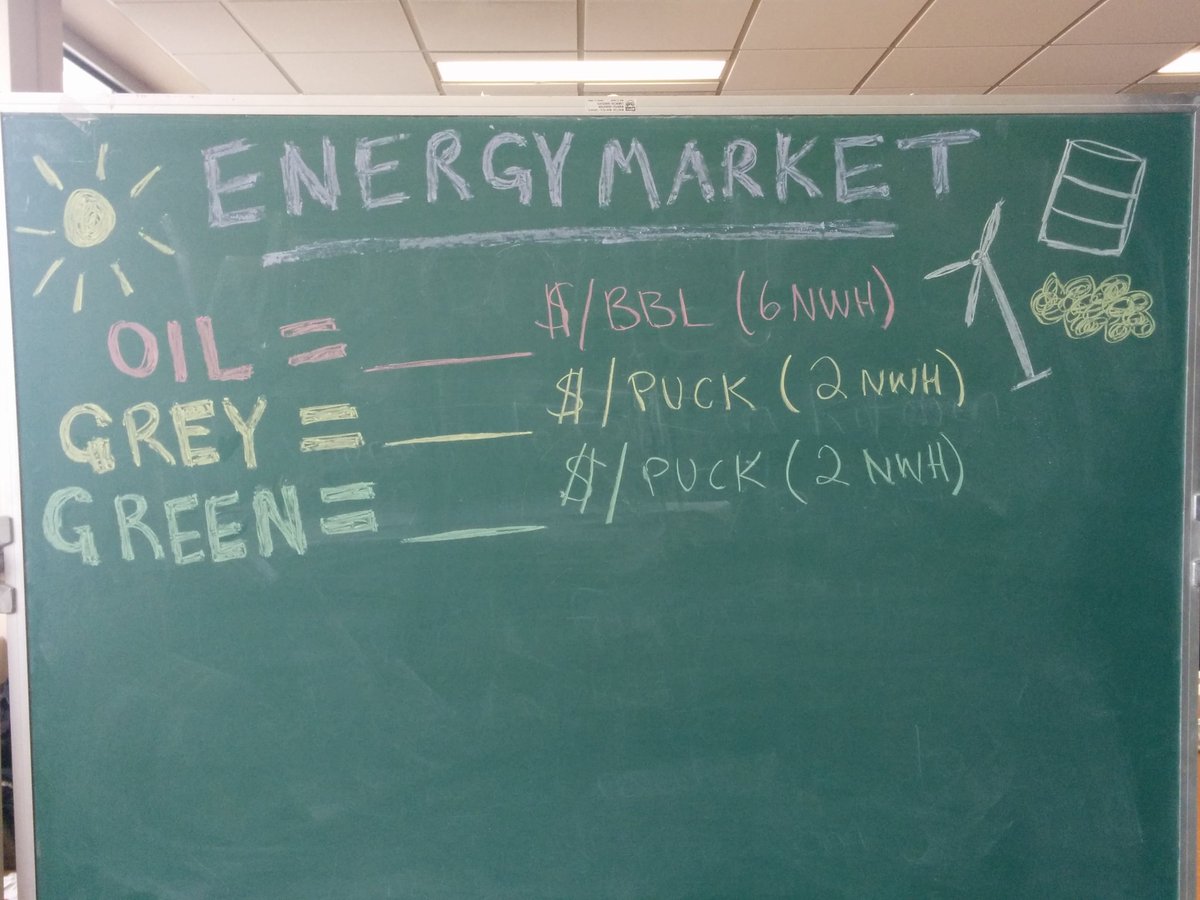 ENERGY MARKET
OIL = ___ $/BBL (6 NWH)
GREY = ___ $/PUCK (2 NWH)
GREEN = ___ $/PUCK (2 NWH)